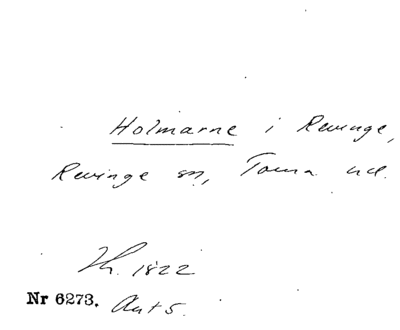 Holmarne i Revinge,
Revinge sn, Torna hd.
Th. 1822
Nr 6273. Ant 5.